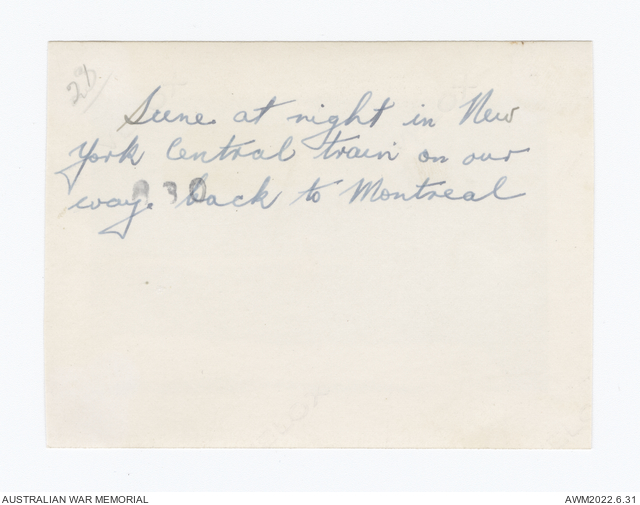 Scene at night in New
York Central train on our
way. back to Montreal
830
AUSTRALIAN WAR MEMORIAL
AWM2022.6.31